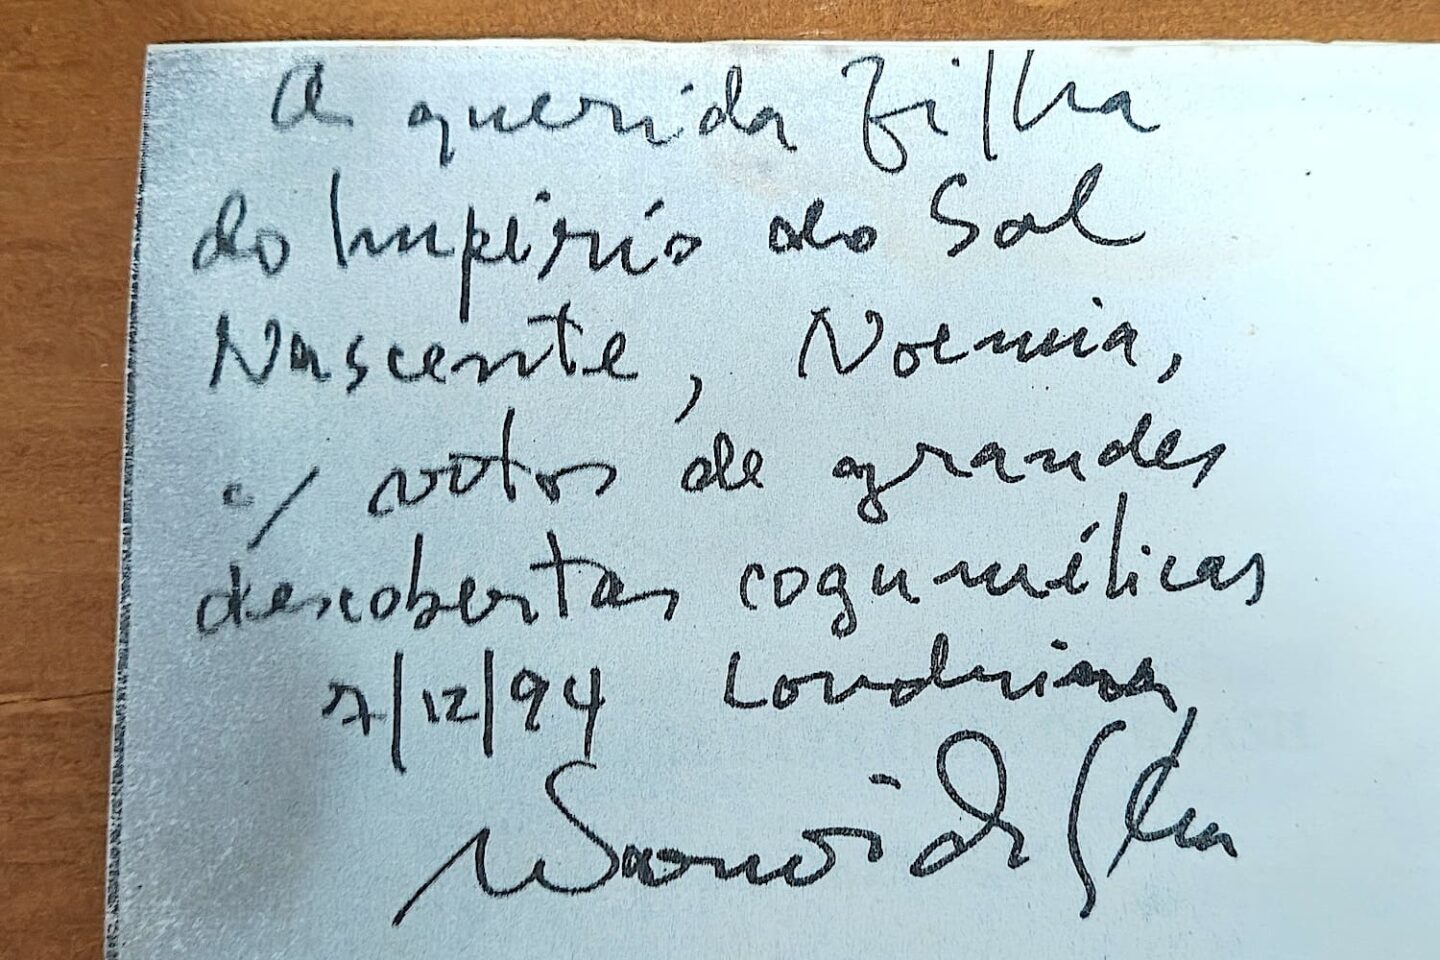 A querida filha
do Império do Sol
Nascente, Noemia,
c/ votos de grandes
descobertas cogumélicas
7/12/94 Londrina,